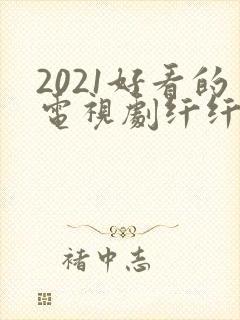 2021好看的
電視劇纤纤
褚中志